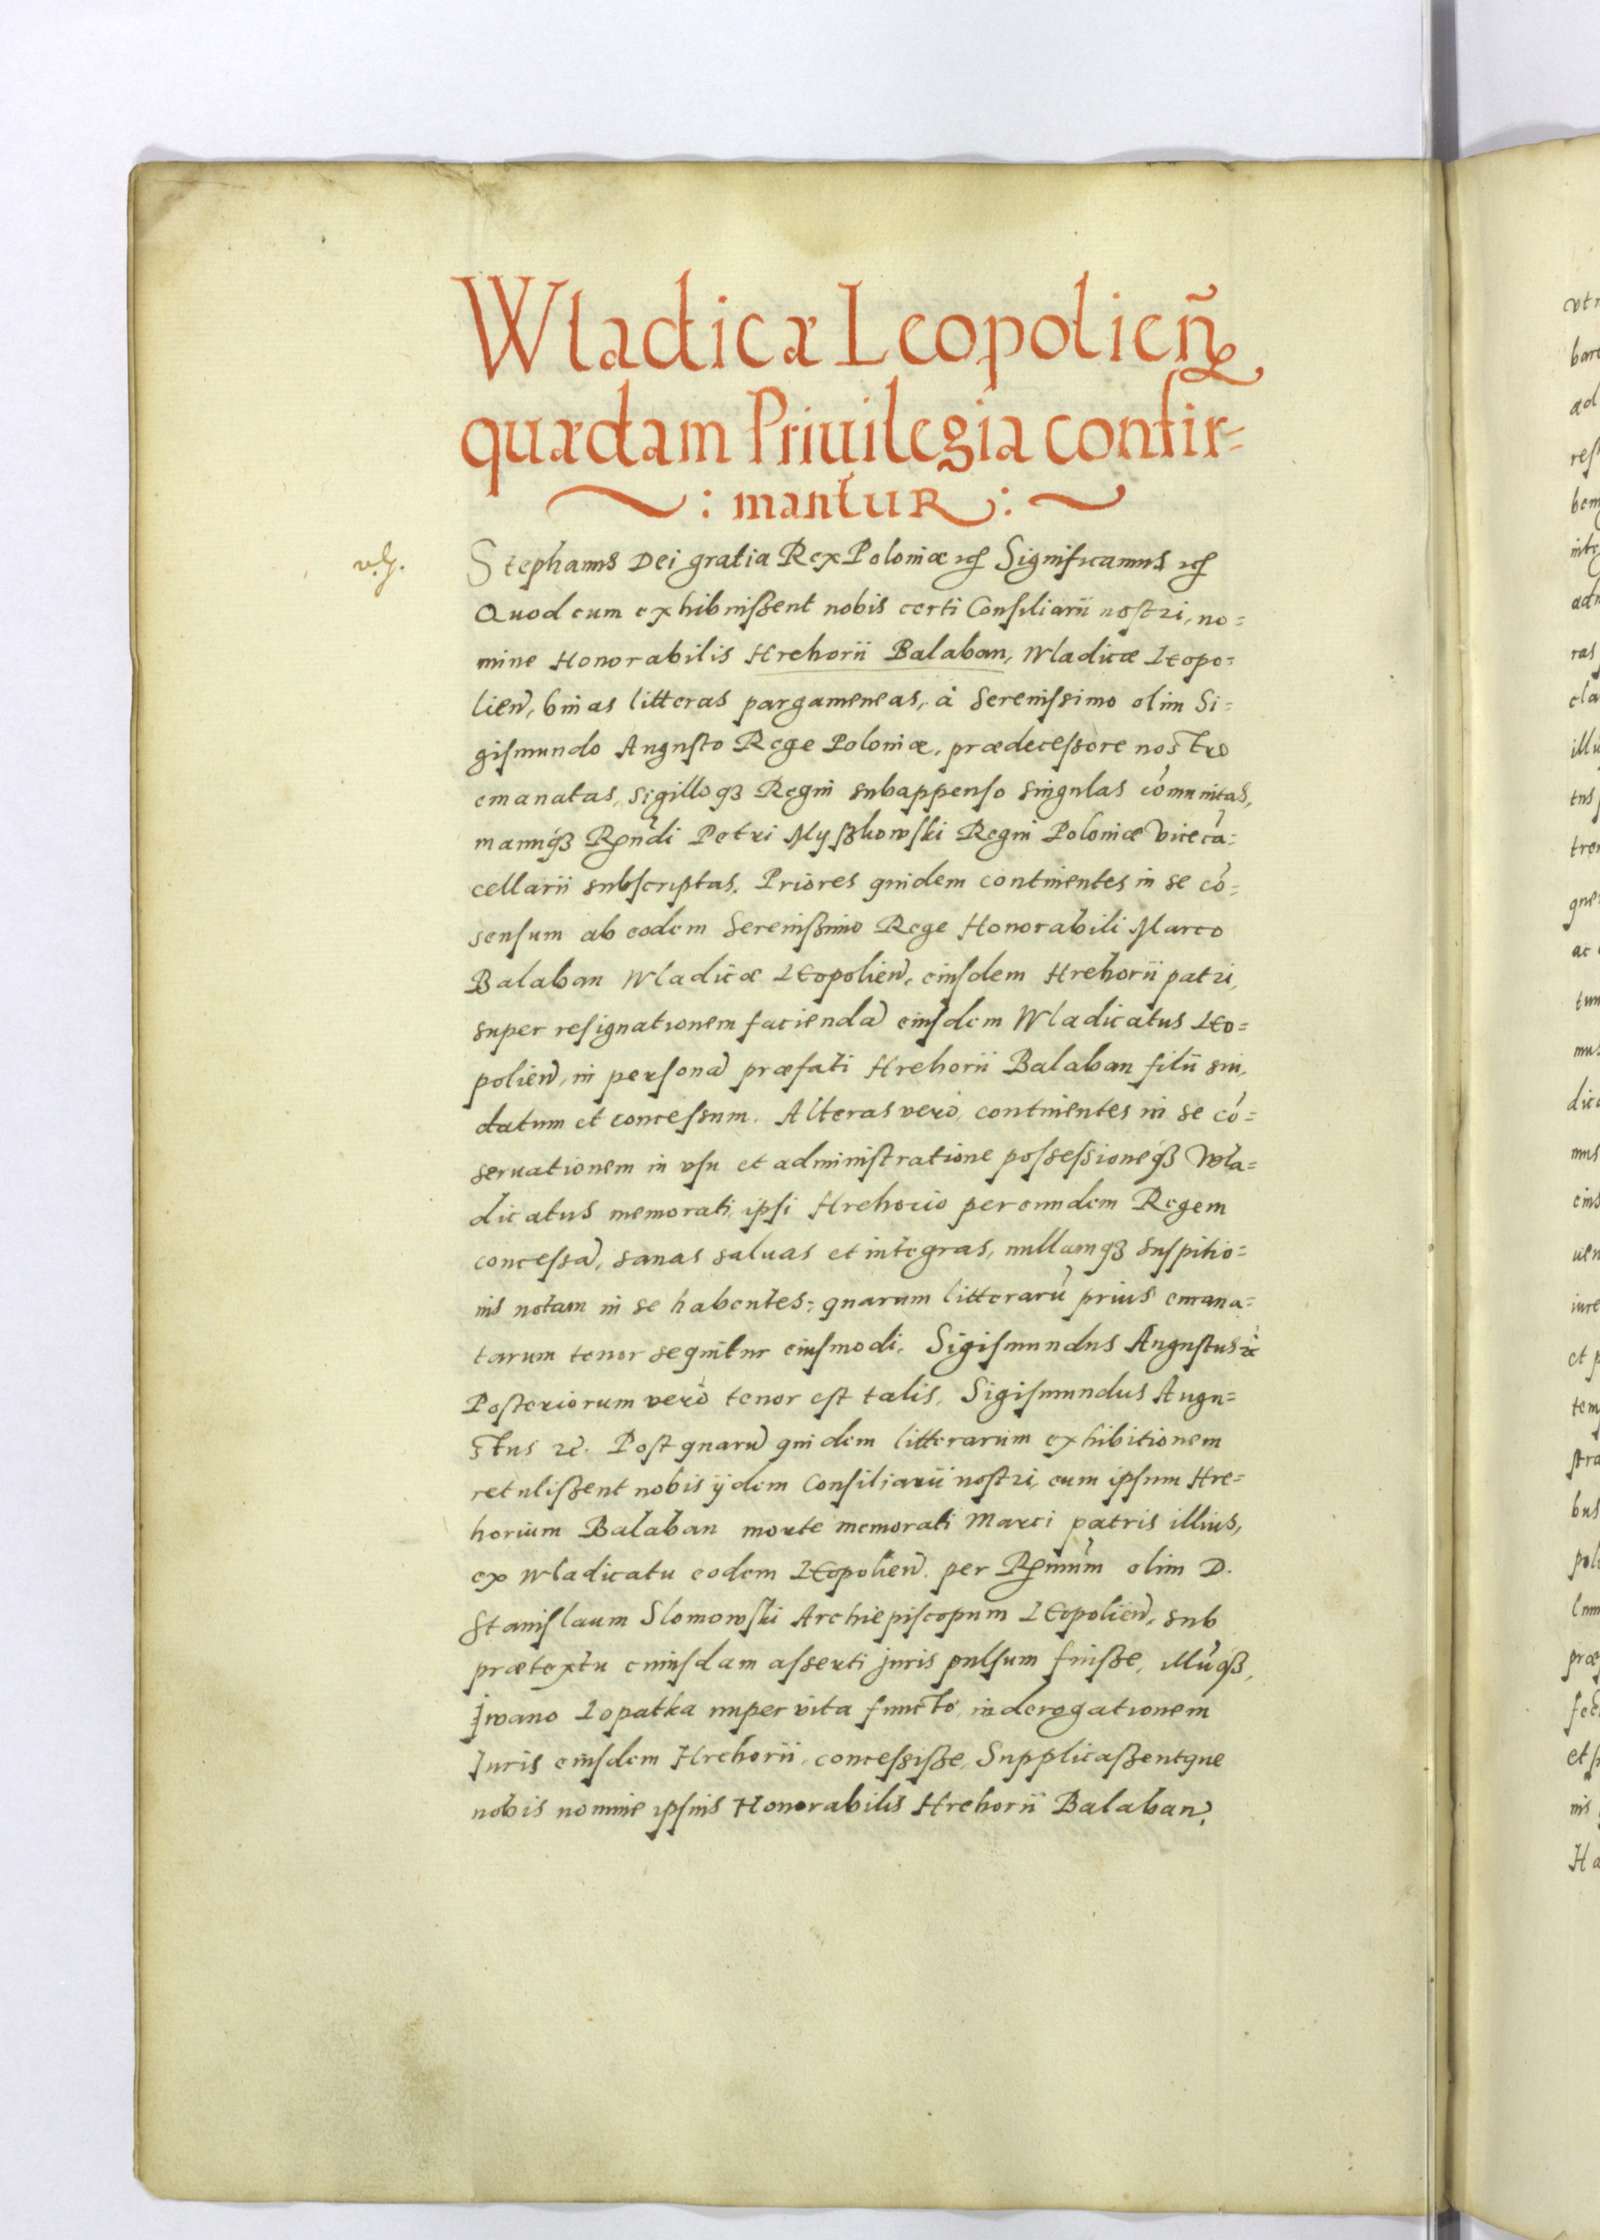 Wladicæ Leopolien̄
quædam Priuilegia confir=
: mantur :
Stephanus Dei gratia Rex Poloniæ etc̄ Significamus etc̄
Quod cum exhibuissent nobis certi Consiliarii nostri, no=
mine Honorabilis Hrehorii Balaban, Wladicæ Leopo=
lien̄, binas litteras pargameneas, à Serenissimo olim Si=
gismundo Augusto Rege Poloniæ, prædecessore nostro
emanatas, sigilloq3 Regni subappenso singulas cōmunitas,
manuq3 Rn̄di Petri Myszkowski Regni Poloniæ Vicecā=
cellarii subscriptas. Priores quidem continentes in se cō=
sensum ab eodem Serenissimo Rege Honorabili Marco
Balaban Wladicæ Leopolien̄, eiusdem Hrehorii patri,
super resignationem faciendā eiusdem Wladicatus Leo=
polien̄, in personā præfati Hrehorii Balaban filii sui,
datum et concessum. Alteras verò, continentes in se cō=
seruationem in vsu et administratione possessioneq3 Wla=
dicatus memorati, ipsi Hrehorio per eundem Regem
concessā, sanas saluas et integras, nullamq3 suspitio=
nis notam in se habentes; quarum litterarū prius emana=
tarum tenor sequitur eiusmodi. Sigismundus Augustus etc
Posteriorum verò tenor est talis, Sigismundus Augu=
stus etc. Post quarū quidem litterarum exhibitionem
retulissent nobis ijdem Consiliarii nostri, eum ipsum Hre=
horium Balaban morte memorati Marci patris illius,
ex Wladicatu eodem Leopolien̄. per Rn̄dum olim D.
Stanislaum Slomowski Archiepiscopum Leopolien̄, sub
prætextu cuiusdam asserti juris pulsum fuisse, illūq3,
Iwano Lopatka nuper vita functo, in derogationem
Iuris eiusdem Hrehorii, concessisse, Supplicassentque
nobis nomine ipsius Honorabilis Hrehorii Balaban,